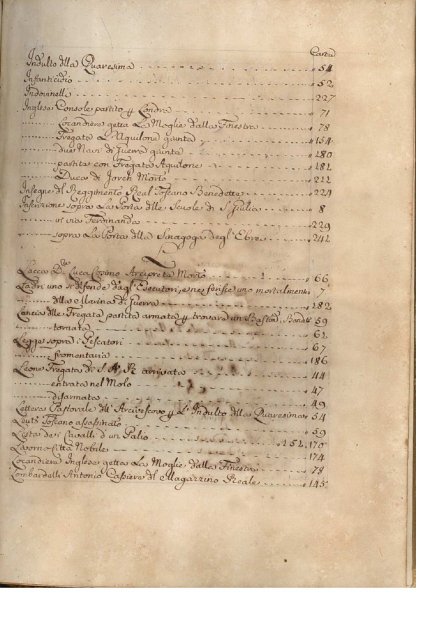 Carte
Indulto dlla Quaresima 54
Infanticidio 52
Indovinelli 227
Inglese Console partito p Londra 71
Locandiere getta La Moglie dalla Finestra 78
Fregata L'Aquilone giunta 154
due Navi di Guerra giunte 180
partita con Fregata Aquilone 181
Duca di Jorch Morto 211
Insegne dl Reggimento Real Toscano Benedette 224
Inscrizione sopra La Porta dlle Scuole di S. Giulia 8
in via Ferdinanda 229
sopra La Porta dlla Sinagoga degl'Ebrei 241
L
Luca Cosimo Arciprete Morto 66
Ladri uno si difende dagl'Esecutori, e ne ferisce uno mortalmente 7
dlla Marina di Guerra 182
Lancia dlle Fregata partita armata p trovare un Bastim. 59
tornata 61
Legge sopra i Pescatori 67
186
Leone Fregata di S. A. R. arrivata 44
entrata nel Molo 47
disarmata 49
Lettera Pastorale dll'Arcivescovo p L'Indulto dlla Quaresima 54
Toscano assassinato 59
Lista dei Cavalli d'un Palio 152, 170
Livorno Città Nobile 174
Locandiere Inglese getta La Moglie dalla Finestra 78
Lombardelli Antonio Cassiere dl Magazzino Reale 145